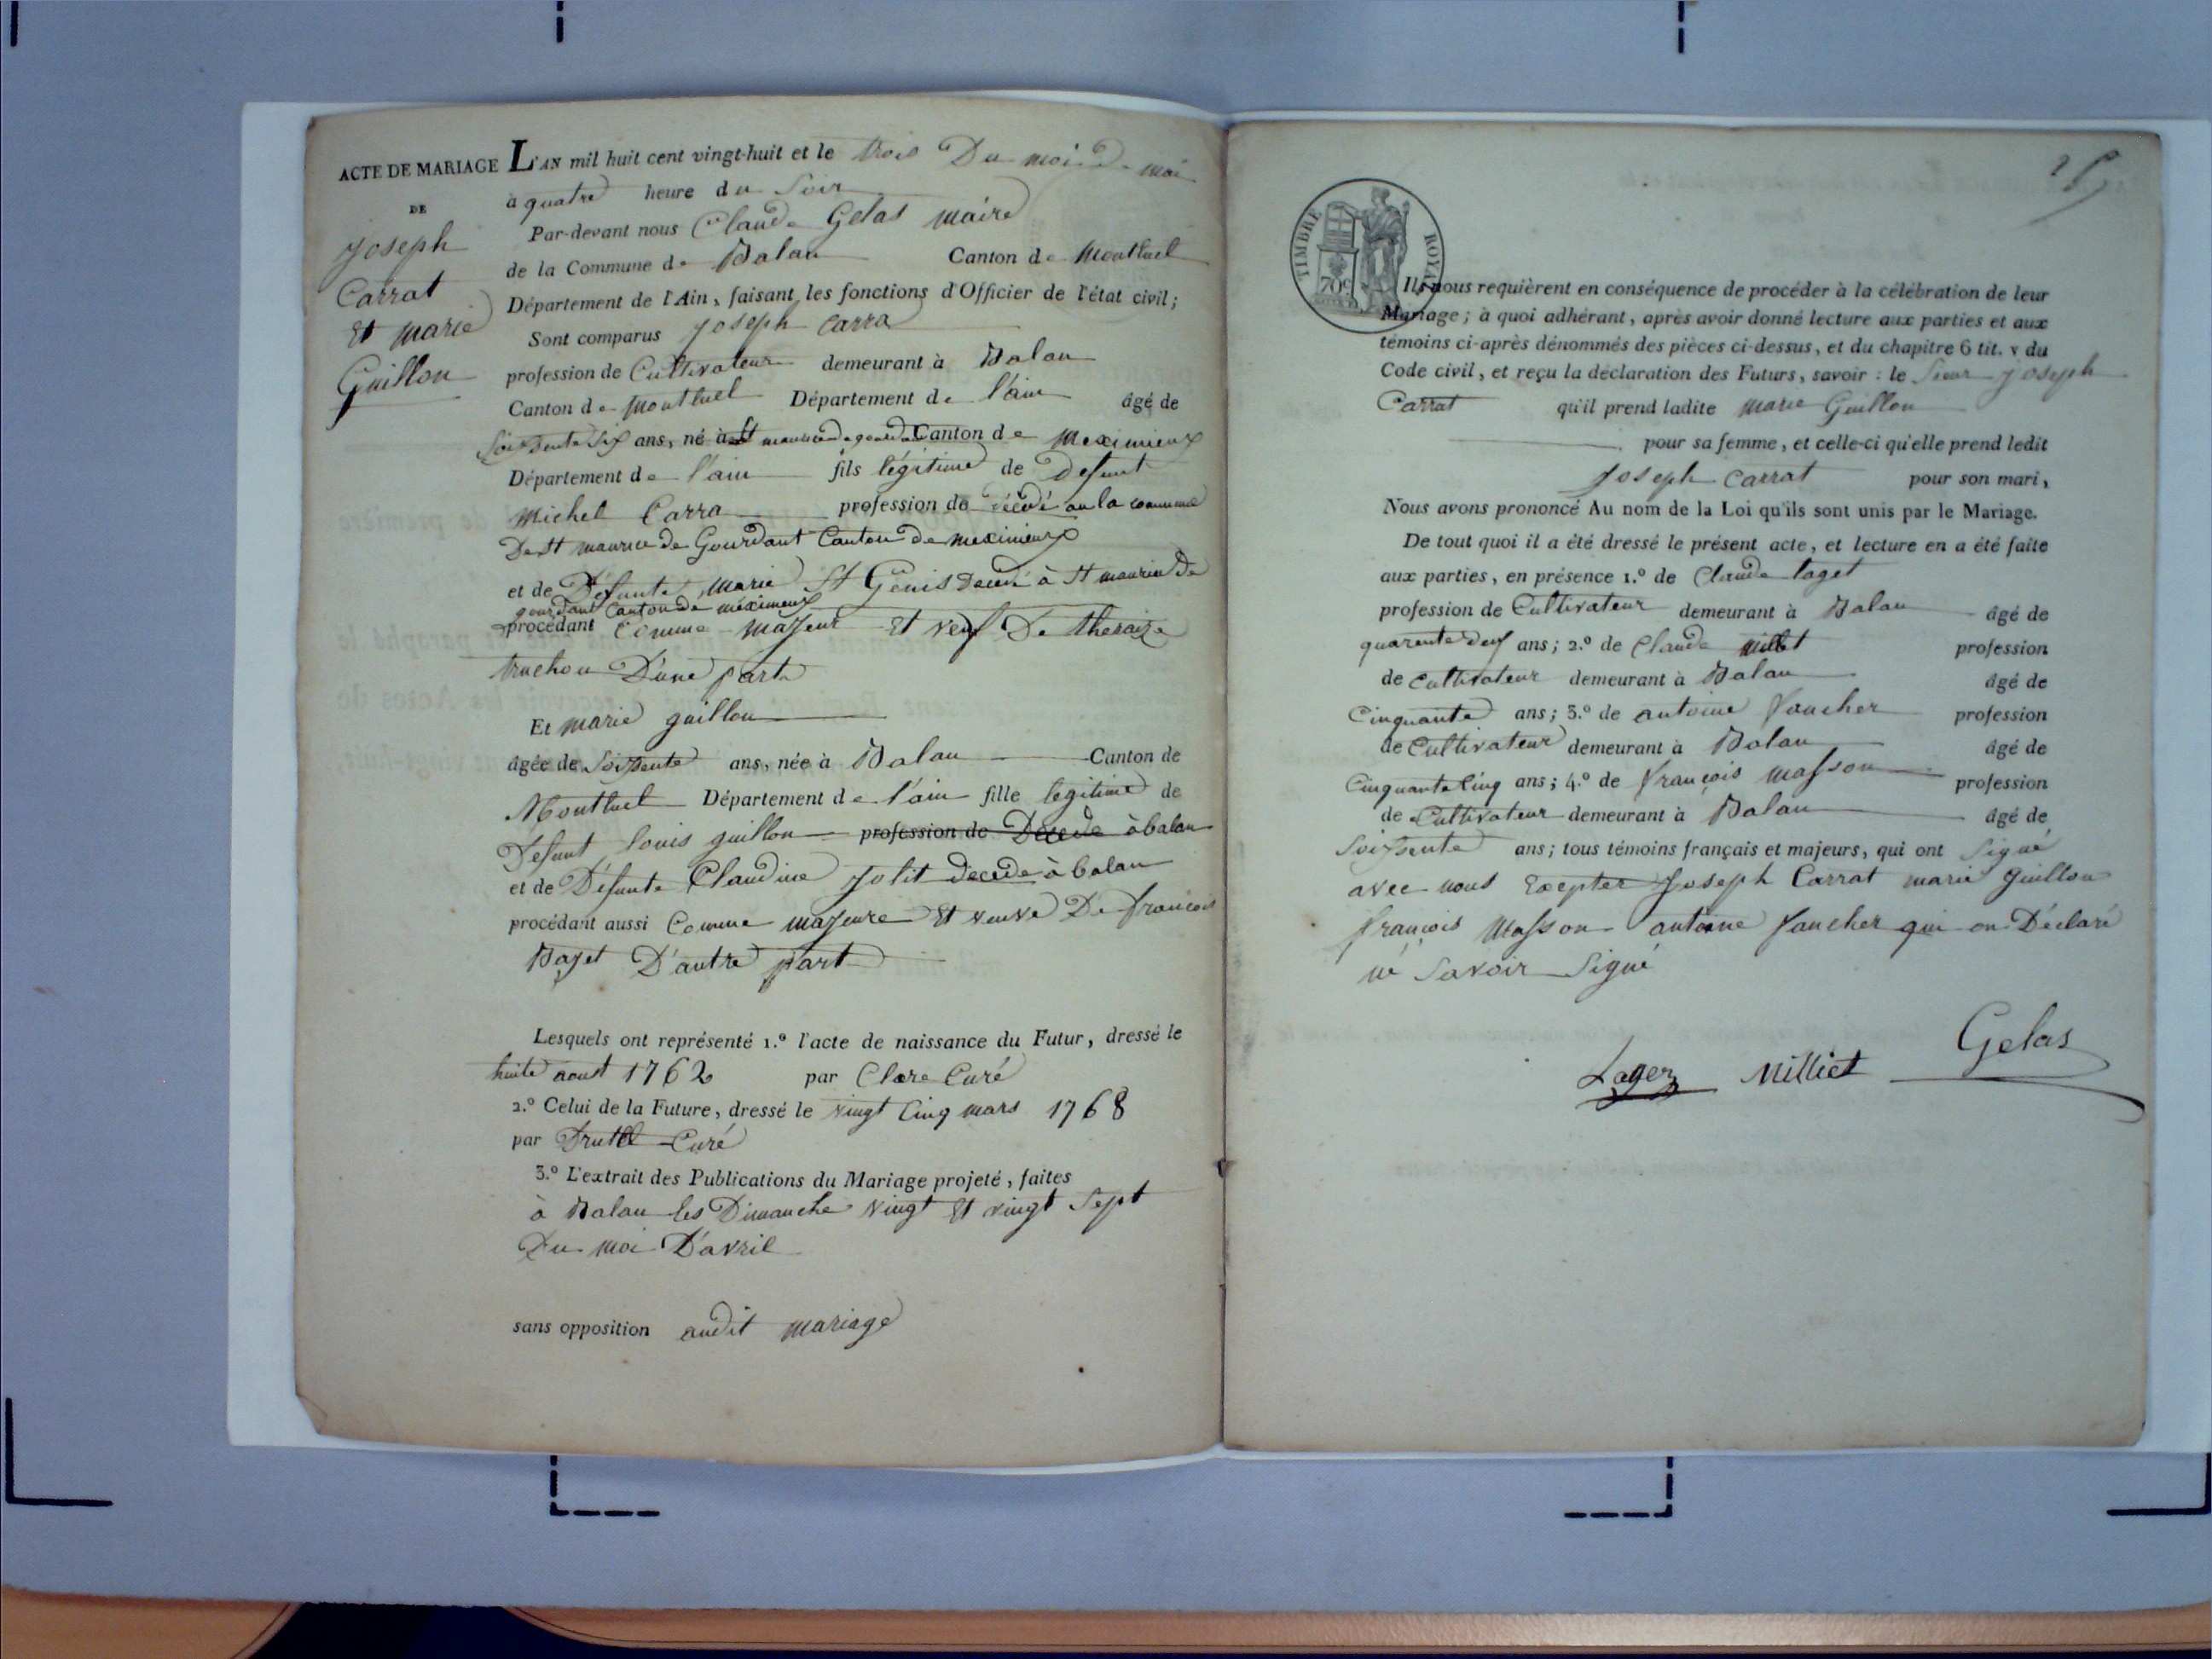 ACTE DE MARIAGE
DE
Joseph
Carrat
Et marie
Guillon
L'AN mil huit cent vingt-huit et le trois Du moi de mai
à quatre heure du Soir
Par-devant nous Claude Gelas maire
de la Commune de Balan Canton de Montluel
Département de l'Ain, faisant les fonctions d'Officier de l'état civil;
Sont comparus Joseph Carra
profession de Cultivateur demeurant à Balan
Canton de Montluel Département de l'ain âgé de
Soissente Six ans, né à St maurice de gourdan Canton de Meximieux
Département de l'ain fils légitime de Defunt
Michel Carra profession de décédé an la commune
De St maurice de Gourdant Canton de meximieux
et de Défunte marie St Genis Décédé à St maurice de
gourdant Canton de méximeux
procédant Comme majeur Et veuf De theraize
truchon D'une part
Et marie guillon
âgée de Soissente ans, née à Balan Canton de
Montluel Département de l'ain fille legitime de
Défunt louis guillon profession de Decede à balan
et de Défunte Claudine Jolit decede à balan
procédant aussi Comme majeure Et veuve De françois
Bajet D'autre part
Lesquels ont représenté 1.º l'acte de naissance du Futur, dressé le
huite aoust 1762 par Clere Curé
2.º Celui de la Future, dressé le vingt Cinq mars 1768
par Curé
3.º L'extrait des Publications du Mariage projeté, faites
à Balan les Dimanche vingt Et vingt Sept
Du moi D'avril
sans opposition audit mariage
TIMBRE ROYAL
70c
Ils nous requièrent en conséquence de procéder à la célébration de leur
Mariage; à quoi adhérant, après avoir donné lecture aux parties et aux
témoins ci-après dénommés des pièces ci-dessus, et du chapitre 6 tit. v du
Code civil, et reçu la déclaration des Futurs, savoir : le Sieur Joseph
Carrat qu'il prend ladite marie Guillon
pour sa femme, et celle-ci qu'elle prend ledit
Joseph Carrat pour son mari,
Nous avons prononcé Au nom de la Loi qu'ils sont unis par le Mariage.
De tout quoi il a été dressé le présent acte, et lecture en a été faite
aux parties, en présence 1.º de Claude laget
profession de Cultivateur demeurant à Balan âgé de
quarente deux ans; 2.º de Claude profession
de Cultivateur demeurant à Balan âgé de
Cinquante ans; 3.º de antoine faucher profession
de Cultivateur demeurant à Balan âgé de
Cinquante Cinq ans; 4.º de françois masson profession
de Cultivateur demeurant à Balan âgé de
Soissente ans; tous témoins français et majeurs, qui ont Signé
avec nous Excepter Joseph Carrat marie guillon
françois Masson antoine faucher qui on Déclaré
né Savoir Signé
Lager Milliet Gelas